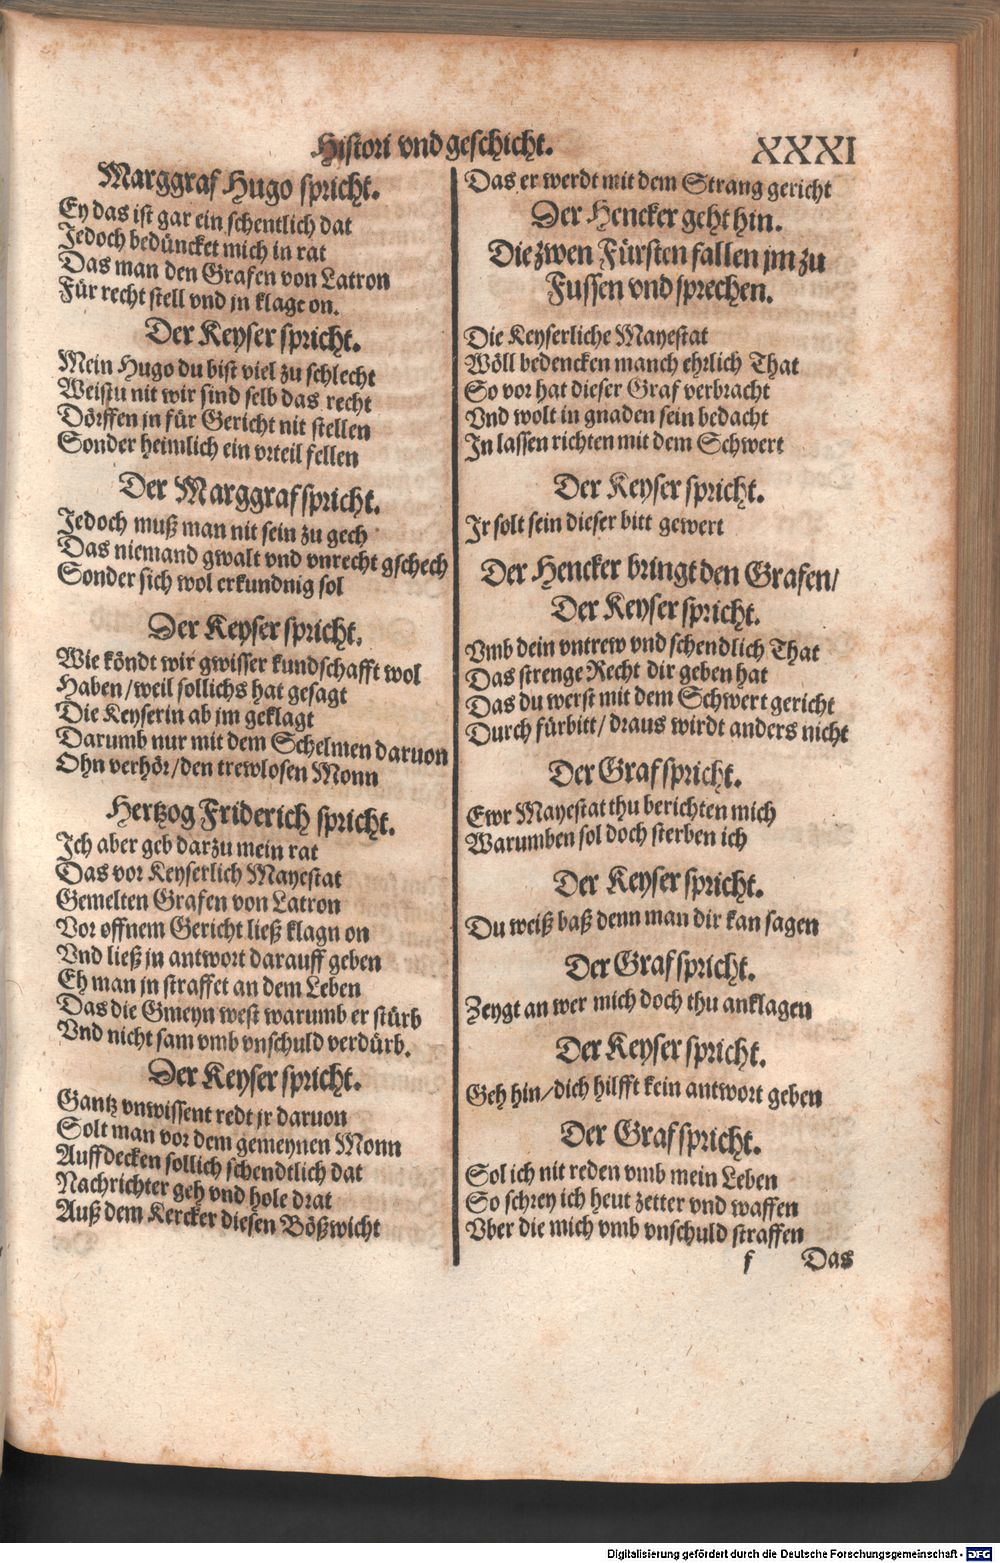 Histori vnd geschicht.
XXXI
Marggraf Hugo spricht.
Ey das ist gar ein schentlich dat
Jedoch bedüncket mich in rat
Das man den Grafen von Latron
Für recht stell vnd jn klagt on.
Der Keyser spricht.
Mein Hugo du bist viel zu schlecht
Weistu nit wir sind selb das recht
Dörffen jn für Gericht nit stellen
Sonder heimlich ein vrteil fellen
Der Marggraf spricht.
Jedoch muß man nit sein zu gech
Das niemand gwalt vnd vnrecht gschech
Sonder sich wol erkundnig sol
Der Keyser spricht.
Wie köndt wir gwisser kundschafft wol
Haben/weil sollichs hat gesagt
Die Keyserin ab jm geklagt
Darumb nur mit dem Schelmen daruon
Ohn verhör/den trewlosen Monn
Hertzog Friderich spricht.
Ich aber geb darzu mein rat
Das vor Keyserlich Mayestat
Gemelten Grafen von Latron
Vor offnem Gericht ließ klagn on
Vnd ließ jn antwort darauff geben
Eh man jn straffet an dem Leben
Das die Gmeyn west warumb er stürb
Vnd nicht sam vmb vnschuld verdürb.
Der Keyser spricht.
Gantz vnwissent redt jr daruon
Solt man vor dem gemeynen Monn
Auffdecken sollich schendtlich dat
Nachrichter geh vnd hole drat
Auß dem Kercker diesen Bößwicht
Das er werdt mit dem Strang gericht
Der Hencker geht hin.
Die zwen Fürsten fallen jm zu
Fussen vnd sprechen.
Die Keyserliche Mayestat
Wöll bedencken manch ehrlich That
So vor hat dieser Graf verbracht
Vnd wolt in gnaden sein bedacht
In lassen richten mit dem Schwert
Der Keyser spricht.
Ir solt sein dieser bitt gewert
Der Hencker bringt den Grafen/
Der Keyser spricht.
Vmb dein vntrew vnd schendlich That
Das strenge Recht dir geben hat
Das du werst mit dem Schwert gericht
Durch fürbitt/ draus wirdt anders nicht
Der Graf spricht.
Ewr Mayestat thu berichten mich
Warumben sol doch sterben ich
Der Keyser spricht.
Du weiß baß denn man dir kan sagen
Der Graf spricht.
Zeygt an wer mich doch thu anklagen
Der Keyser spricht.
Geh hin/dich hilfft kein antwort geben
Der Graf spricht.
Sol ich nit reden vmb mein Leben
So schrey ich heut zetter vnd waffen
Vber die mich vmb vnschuld straffen
f Das
Digitalisierung gefördert durch die Deutsche Forschungsgemeinschaft - DFG